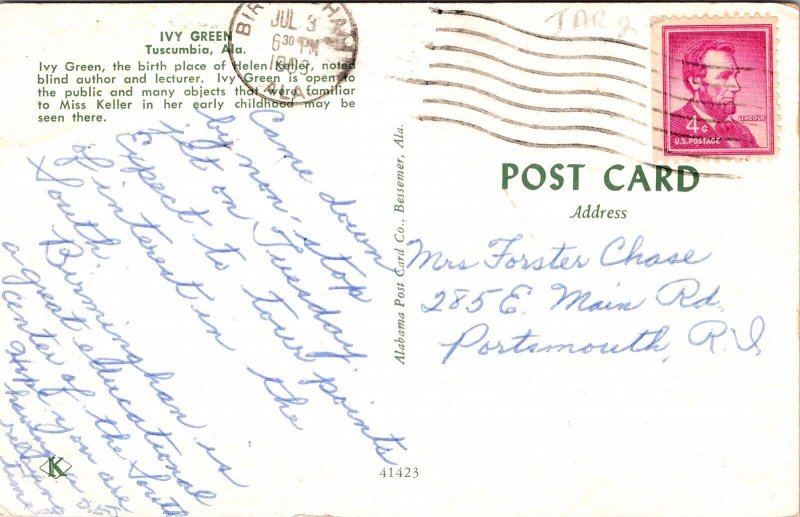 IVY GREEN
Tuscumbia, Ala.
Ivy Green, the birth place of Helen Keller, noted
blind author and lecturer. Ivy Green is open to
the public and many objects that were familiar
to Miss Keller in her early childhood may be
seen there.
BIRMINGHAM
JUL 3
6 30 PM
ALA
LINCOLN
4¢
U.S. POSTAGE
POST CARD
Address
Alabama Post Card Co., Bessemer, Ala.
Mrs Forster Chase
285 E. Main Rd.
Portsmouth, R.I
Came down
by non-stop
jet on Tuesday.
Expect to tour points
of interest in the
South.
Birmingham is
a great educational
center of the South
Hope you are
having a
time
K
41423